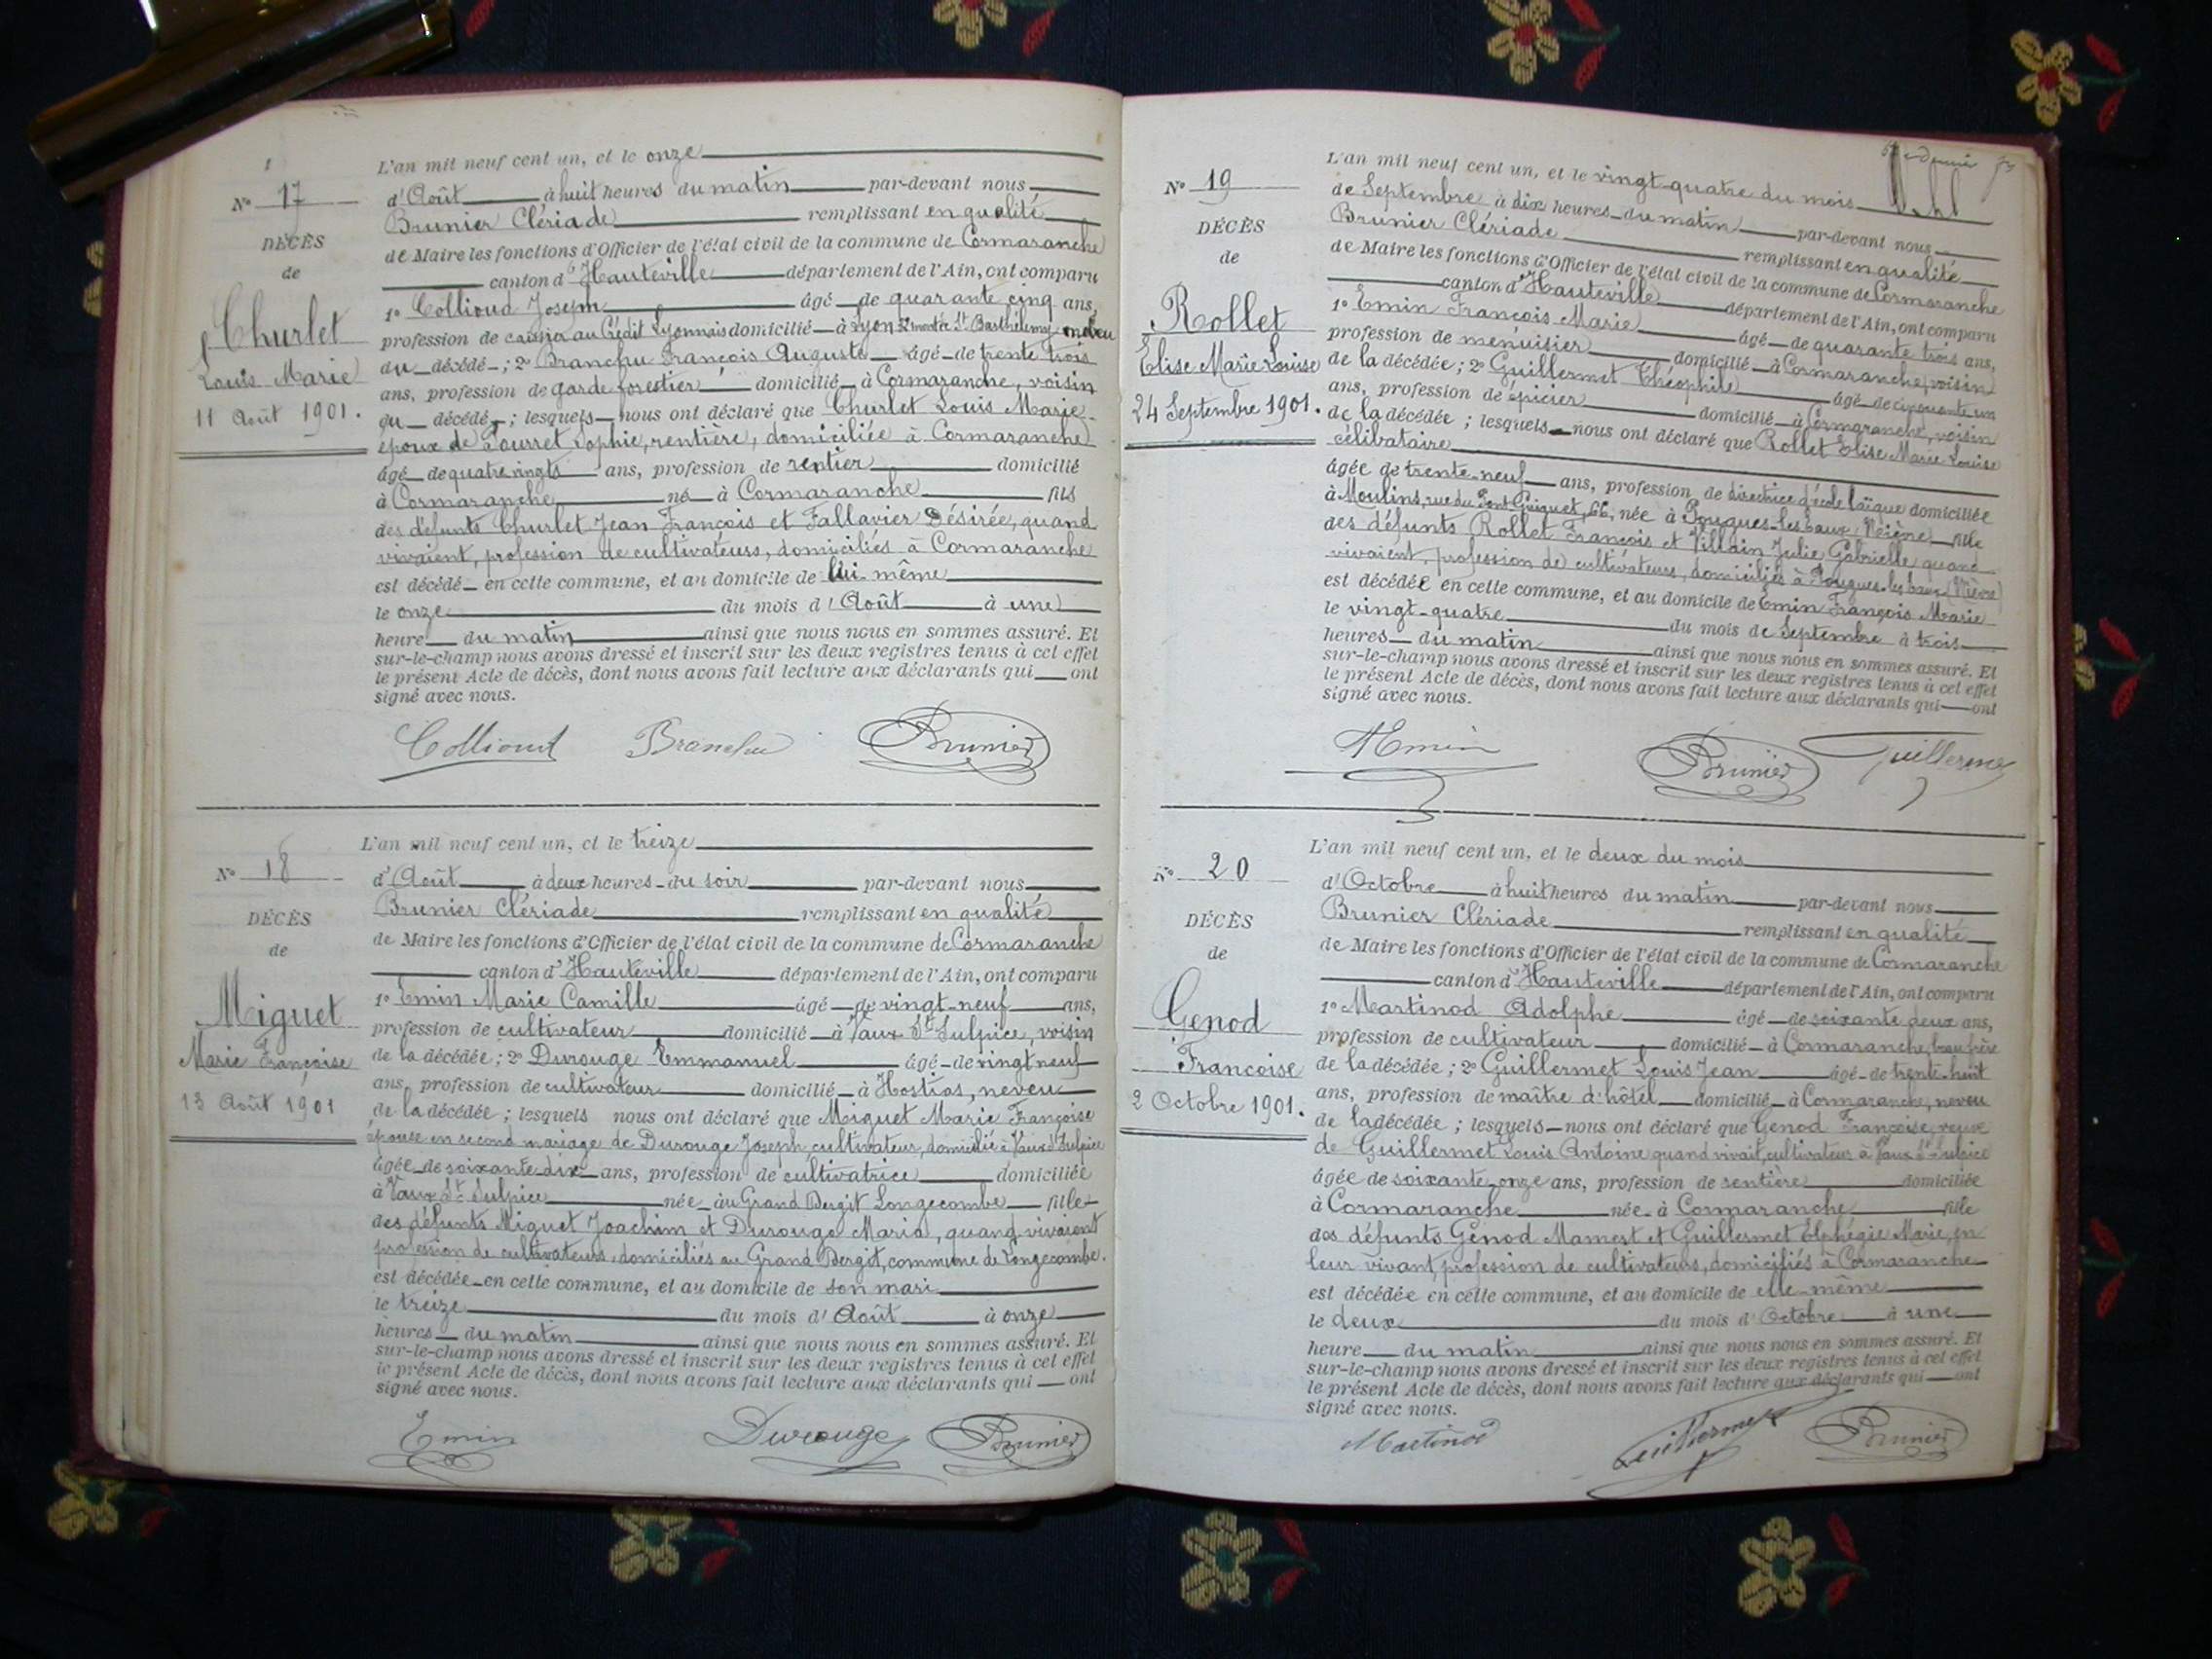 L'an mil neuf cent un, et le onze
N° 17
d'Août à huit heures du matin par-devant nous
Brunier Clériade remplissant en qualité
DÉCÈS
de Maire les fonctions d'Officier de l'état civil de la commune de Cormaranche
de
canton d'Hauteville département de l'Ain, ont comparu
1° Collioud Joseph âgé de quarante cinq ans,
Churlet
profession de caissier au Crédit Lyonnais domicilié à Lyon montée St Barthélemy neveu
Louis Marie
du décédé ; 2° Branchu François Auguste âgé de trente trois
ans, profession de garde forestier domicilié à Cormaranche, voisin
11 Août 1901.
du décédé ; lesquels nous ont déclaré que Churlet Louis Marie
époux de Tourret Sophie, rentière, domiciliée à Cormaranche
âgé de quatre vingts ans, profession de rentier domicilié
à Cormaranche né à Cormaranche fils
des défunts Churlet Jean François et Fallavier Désirée, quand
vivaient, profession de cultivateurs, domiciliés à Cormaranche
est décédé en cette commune, et au domicile de lui même
le onze du mois d'Août à une
heure du matin ainsi que nous nous en sommes assuré. Et
sur-le-champ nous avons dressé et inscrit sur les deux registres tenus à cet effet
le présent Acte de décès, dont nous avons fait lecture aux déclarants qui ont
signé avec nous.
Collioud Branchu Brunier
L'an mil neuf cent un, et le treize
N° 18
d'Août à deux heures du soir par-devant nous
Brunier Clériade remplissant en qualité
DÉCÈS
de Maire les fonctions d'Officier de l'état civil de la commune de Cormaranche
de
canton d'Hauteville département de l'Ain, ont comparu
1° Emin Marie Camille âgé de vingt-neuf ans,
Miguet
profession de cultivateur domicilié à Vaux St Sulpice, voisin
Marie Françoise
de la décédée ; 2° Durouge Emmanuel âgé de vingt neuf
ans, profession de cultivateur domicilié à Hostias, neveu
13 Août 1901
de la décédée ; lesquels nous ont déclaré que Miguet Marie Françoise
épouse en second mariage de Durouge Joseph, cultivateur, domicilié à Vaux St Sulpice
âgée de soixante dix ans, profession de cultivatrice domiciliée
à Vaux St Sulpice née au Grand Dergit Longecombe fille
des défunts Miguet Joachim et Durouge Maria, quand vivaient
profession de cultivateurs, domiciliés au Grand Dergit, commune de Longecombe.
est décédée en cette commune, et au domicile de son mari
le treize du mois d'Août à onze
heures du matin ainsi que nous nous en sommes assuré. Et
sur-le-champ nous avons dressé et inscrit sur les deux registres tenus à cet effet
le présent Acte de décès, dont nous avons fait lecture aux déclarants qui ont
signé avec nous.
Emin Durouge Brunier
L'an mil neuf cent un, et le vingt-quatre du mois
N° 19
de Septembre à dix heures du matin par-devant nous
Brunier Clériade remplissant en qualité
DÉCÈS
de Maire les fonctions d'Officier de l'état civil de la commune de Cormaranche
de
canton d'Hauteville département de l'Ain, ont comparu
1° Emin François Marie âgé de quarante trois ans,
Rollet
profession de menuisier domicilié à Cormaranche, voisin
Elise Marie Louise
de la décédée ; 2° Guillermet Théophile âgé de cinquante un
ans, profession d'épicier domicilié à Cormaranche, voisin
24 Septembre 1901.
de la décédée ; lesquels nous ont déclaré que Rollet Elise Marie Louise
célibataire
âgée de trente-neuf ans, profession de directrice d'école laïque domiciliée
à Moulins, rue du Pont Guinguet, 66, née à Pougues-les-Eaux, Nièvre fille
des défunts Rollet François et Villain Julie Gabrielle quand
vivaient, profession de cultivateurs, domiciliés à Pougues-les-Eaux (Nièvre)
est décédée en cette commune, et au domicile de Emin François Marie
le vingt-quatre du mois de Septembre à trois
heures du matin ainsi que nous nous en sommes assuré. Et
sur-le-champ nous avons dressé et inscrit sur les deux registres tenus à cet effet
le présent Acte de décès, dont nous avons fait lecture aux déclarants qui ont
signé avec nous.
Emin Brunier Guillermet
L'an mil neuf cent un, et le deux du mois
N° 20
d'Octobre à huit heures du matin par-devant nous
Brunier Clériade remplissant en qualité
DÉCÈS
de Maire les fonctions d'Officier de l'état civil de la commune de Cormaranche
de
canton d'Hauteville département de l'Ain, ont comparu
1° Martinod Adolphe âgé de soixante deux ans,
Genod
profession de cultivateur domicilié à Cormaranche, beau frère
Francoise
de la décédée ; 2° Guillermet Louis Jean âgé de trente-huit
ans, profession de maître d'hôtel domicilié à Cormaranche, neveu
2 Octobre 1901.
de la décédée ; lesquels nous ont déclaré que Genod Françoise, veuve
de Guillermet Louis Antoine quand vivait, cultivateur à Vaux St Sulpice
âgée de soixante-onze ans, profession de rentière domiciliée
à Cormaranche née à Cormaranche fille
des défunts Genod Mamert et Guillermet Elphégie Marie, en
leur vivant, profession de cultivateurs, domiciliés à Cormaranche
est décédée en cette commune, et au domicile de elle-même
le deux du mois d'Octobre à une
heure du matin ainsi que nous nous en sommes assuré. Et
sur-le-champ nous avons dressé et inscrit sur les deux registres tenus à cet effet
le présent Acte de décès, dont nous avons fait lecture aux déclarants qui ont
signé avec nous.
Martinod Guillermet Brunier